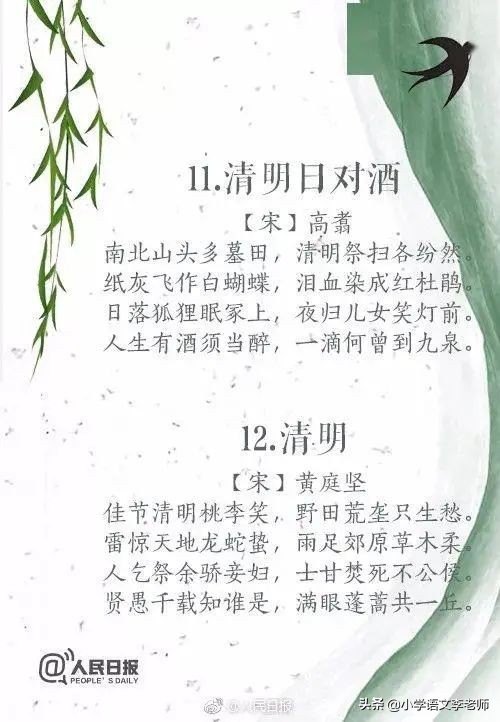 11.清明日对酒
【宋】高翥
南北山头多墓田，清明祭扫各纷然。
纸灰飞作白蝴蝶，泪血染成红杜鹃。
日落狐狸眠冢上，夜归儿女笑灯前。
人生有酒须当醉，一滴何曾到九泉。
12.清明
【宋】黄庭坚
佳节清明桃李笑，野田荒垄只生愁。
雷惊天地龙蛇蛰，雨足郊原草木柔。
人乞祭余骄妾妇，士甘焚死不公侯。
贤愚千载知谁是，满眼蓬蒿共一丘。
@人民日报
PEOPLE'S DAILY
@人民日报
头条@小学语文李老师